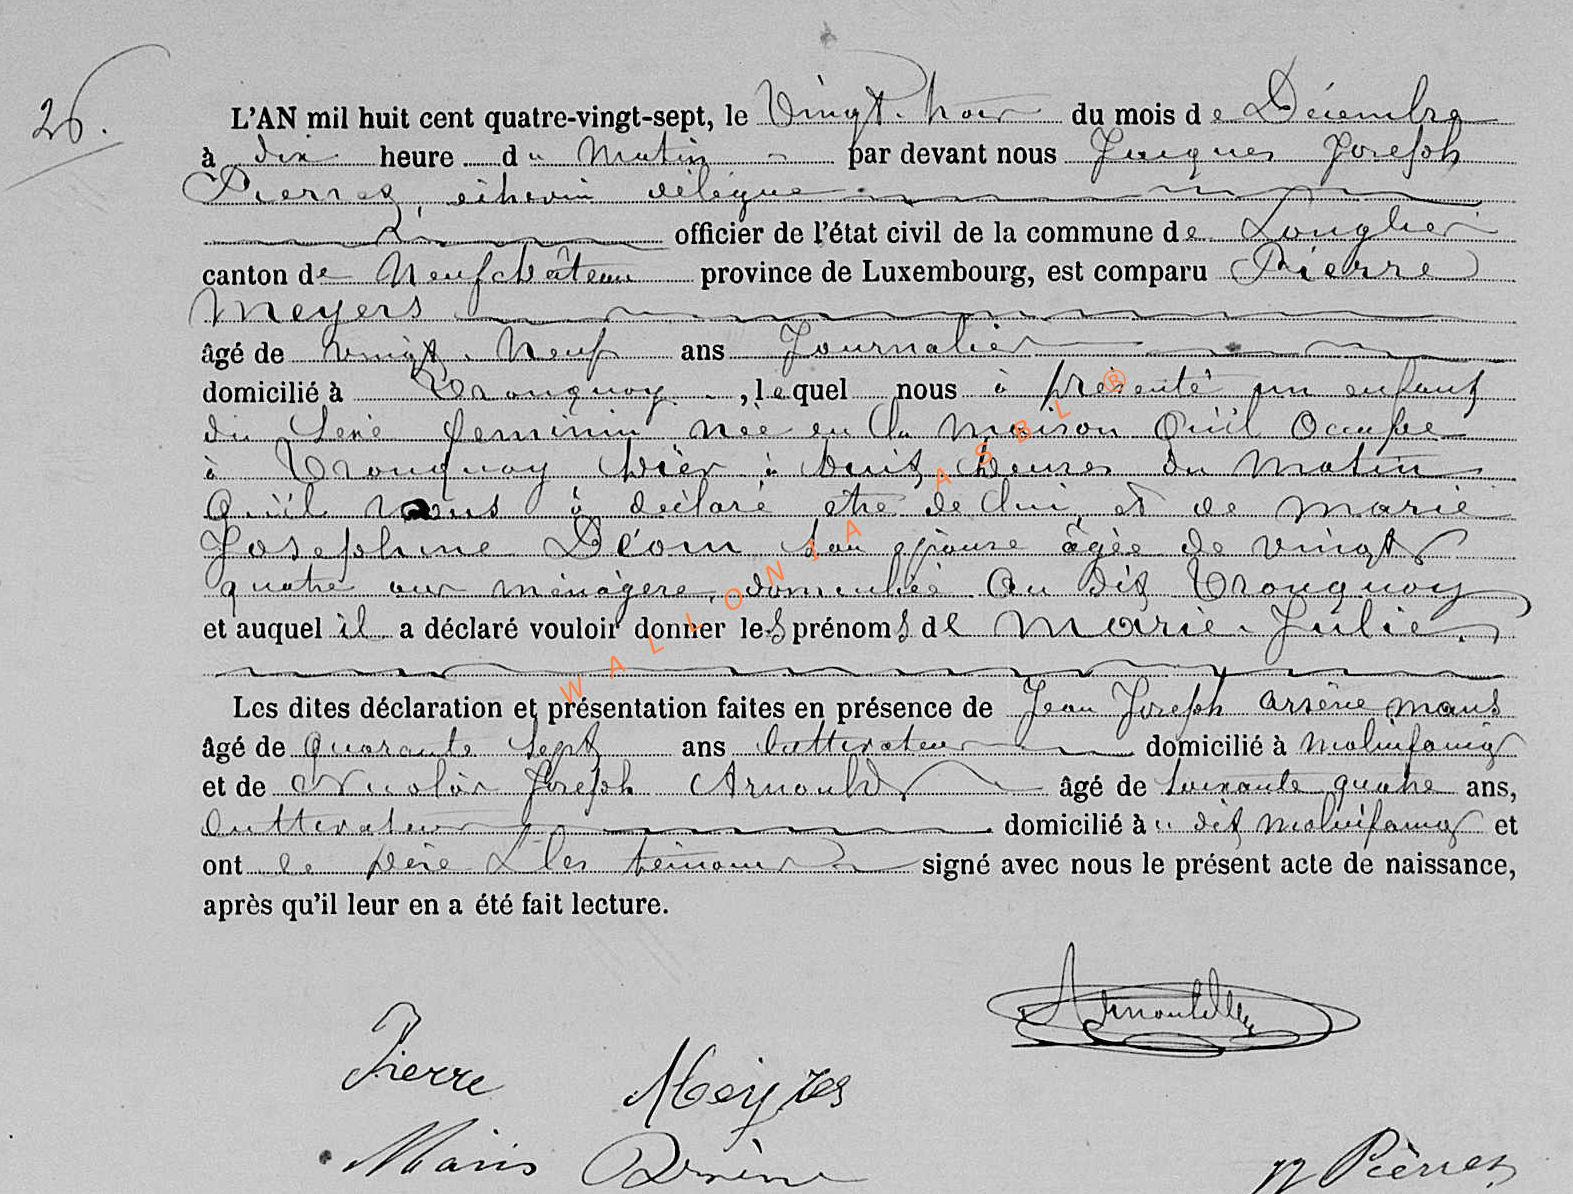 26.
L'AN mil huit cent quatre-vingt-sept, le Vingt-trois du mois de Décembre
à dix heure du Matin par devant nous Jacques Joseph
Pierret, échevin délégué
officier de l'état civil de la commune de Longlier
canton de Neufchâteau province de Luxembourg, est comparu Pierre
Meyers
âgé de vingt-Neuf ans Journalier
domicilié à Tronquoy, lequel nous à présenté un enfant
du sexe feminin née en la maison Qu'il Occupe
à Tronquoy hièr à huit heures du Matin
Qu'il nous à déclaré etre de lui et de Marie
Josephine Déom son épouse âgée de vingt
quatre ans ménagère, domiciliée Au dit Tronquoy
et auquel il a déclaré vouloir donner les prénoms de Marie-Julie.
Les dites déclaration et présentation faites en présence de Jean Joseph Arsène Maus
âgé de Quarante sept ans Cultivateur domicilié à Molinfaing
et de Nicolas Joseph Arnould âgé de soixante quatre ans,
Cultivateur domicilié àu dit Molinfaing et
ont le père & les témoins signé avec nous le présent acte de naissance,
après qu'il leur en a été fait lecture.
Arnould
Pierre Meyres
Maus Arsène
Pièrret
WALLONIA ASBL ®